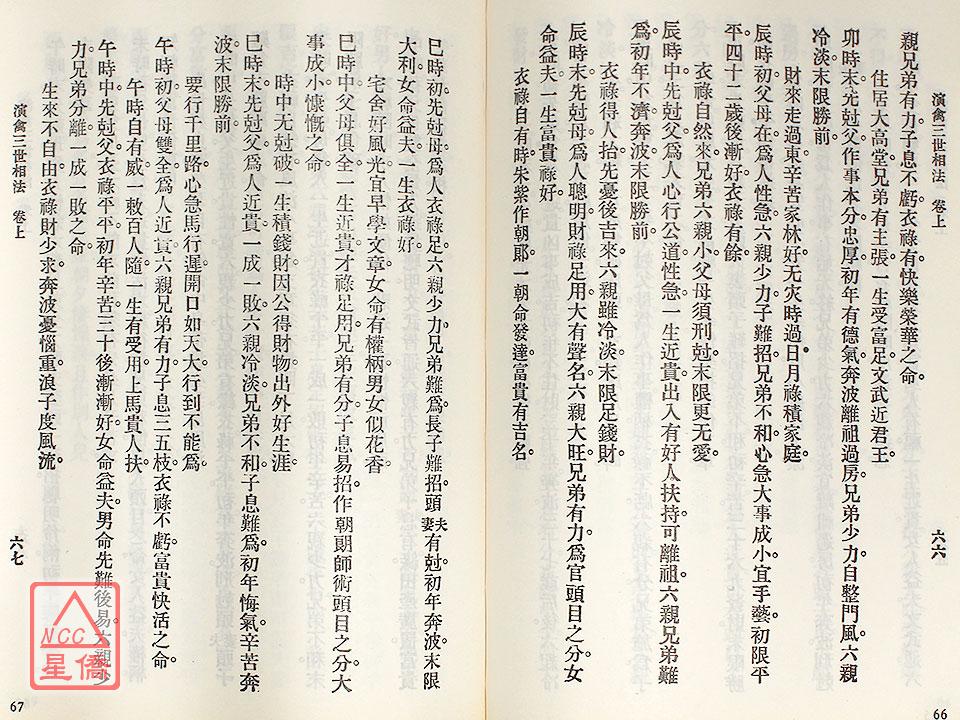 演禽三世相法 卷上
六六
親兄弟有力。子息不虧。衣祿有快樂榮華之命。
住居大高堂。兄弟有主張。一生受富足。文武近君王。
卯時末。先尅父。作事本分忠厚。初年有德氣。奔波離祖過房。兄弟少力。自整門風。六親
冷淡。末限勝前。
財來走過東。辛苦家林好。无灾時過日。月祿積家庭。
辰時初。父母在。為人性急。六親少力。子難招。兄弟不和。心急大事成小。宜手藝。初限平
平。四十二歲後漸好。衣祿有餘。
衣祿自然來。兄弟六親小。父母須刑尅。末限更无愛。
辰時中。先尅父。為人心行公道。性急。一生近貴。出入有好人扶持。可離祖。六親兄弟難
為。初年不濟。奔波。末限勝前。
衣祿得人抬。先憂後吉來。六親雖冷淡。末限足錢財。
辰時末。先尅母。為人聰明。財祿足用。大有聲名。六親大旺。兄弟有力。為官頭目之分。女
命益夫。一生富貴祿好。
衣祿自有時。朱紫作朝郞。一朝命發達。富貴有吉名。
66
巳時初。先尅母。為人衣祿足。六親少力。兄弟難為。長子難招。頭妻夫有尅。初年奔波。末限
大利。女命益夫。一生衣祿好。
宅舍好風光。宜早學文章。女命有權柄。男女似花香。
巳時中。父母俱全。一生近貴。才祿足用。兄弟有分。子息易招。作朝朗師術頭目之分。大
事成小。慷慨之命。
時中无尅破。一生積錢財。因公得財物。出外好生涯。
巳時末。先尅父。為人近貴。一成一敗。六親冷淡。兄弟不和。子息難為。初年悔氣辛苦奔
波。末限勝前。
要行千里路。心急馬行遲。開口如天大。行到不能為。
午時初。父母雙全。為人近貴。六親兄弟有力。子息三五枝。衣祿不虧。富貴快活之命。
午時自有威。一敕百人隨。一生有受用。上馬貴人扶。
午時中。先尅父。衣祿平平。初年辛苦。三十後漸漸好。女命益夫。男命先難後易。六親少
力。兄弟分離。一成一敗之命。
生來不自由。衣祿財少求。奔波憂惱重。浪子度風流。
演禽三世相法 卷上
六七
67
NCC
星僑